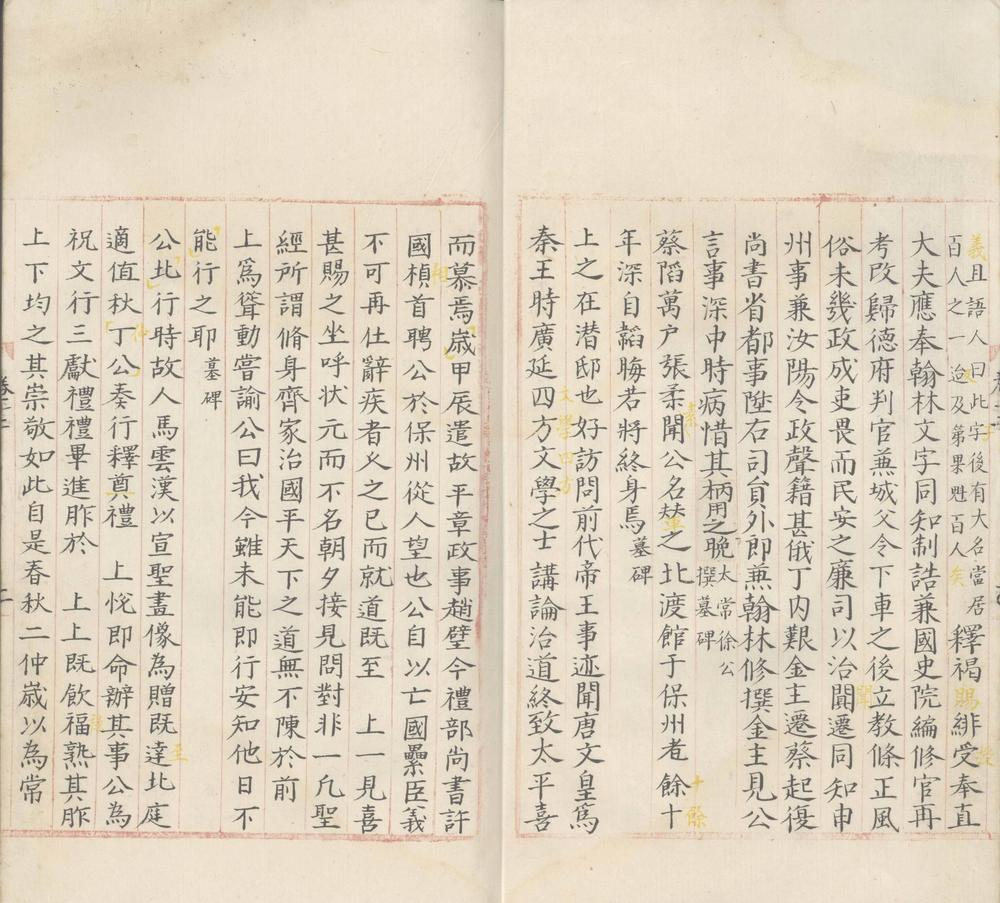 義且語人曰此字後有大名當居
百人之一迨及第果魁百人矣
釋褐賜緋受奉直
大夫應奉翰林文字同知制誥兼國史院編修官再
考改歸德府判官兼城父令下車之後立教條正風
俗未幾政成吏畏而民安之廉司以治闃遷同知申
州事兼汝陽令政聲籍甚俄丁内艱金主遷蔡起復
尚書省都事陞右司貟外即兼翰林修撰金主見公
言事深中時病惜其柄用之晚太常徐公
撰墓碑
蔡䧟萬户張柔聞公名㚘之北渡館于保州者餘十
年深自韜晦若將終身焉墓碑
上之在潜邸也好訪問前代帝王事迹聞唐文皇爲
秦王時廣延四方文學之士講論治道終致太平喜
而慕焉歲甲辰遣故平章政事趙璧今禮部尚書許
國楨首聘公於保州從人望也公自以亡國纍臣義
不可再仕辭疾者乆之已而就道既至 上一見喜
甚賜之坐呼状元而不名朝夕接見問對非一凡聖
經所謂脩身齊家治國平天下之道無不陳於前
上爲聳動嘗諭公曰我今雖未能即行安知他日不
能行之耶墓碑
公北行時故人馬雲漢以宣聖畫像為贈既達北庭
適值秋丁公奏行釋奠禮 上悅即命辦其事公為
祝文行三獻禮禮畢進胙於 上上既飲福熟其胙
上下均之其崇敬如此自是春秋二仲歲以為常